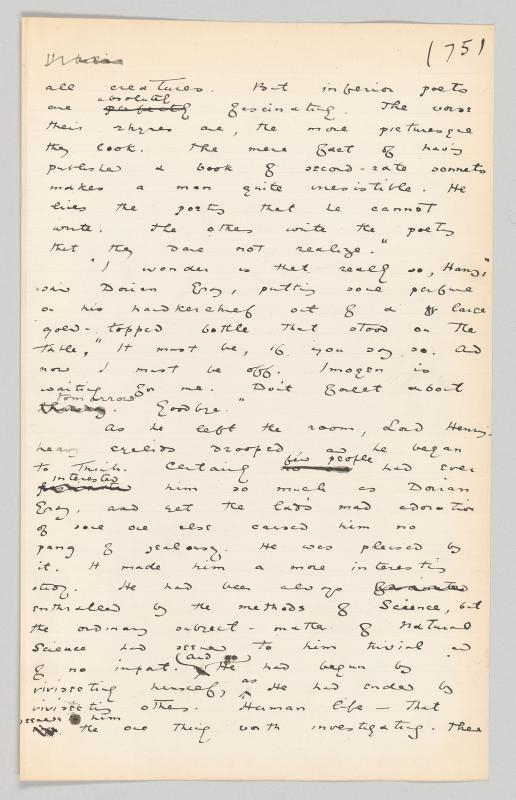 (75)
all creatures. But inferior poets
absolutely
are perfectly fascinating. The worse
their rhymes are, the more picturesque
they look. The mere fact of having
published a book of second-rate sonnets
makes a man quite irresistible. He
lives the poetry that he cannot
write. The others write the poetry
that they dare not realize."
"I wonder is that really so, Harry,"
said Dorian Gray, putting some perfume
on his handkerchief out of a large
gold-topped bottle that stood on the
table, "It must be, if you say so. And
now I must be off. Imogen is
waiting for me. Don't forget about
tomorrow
. Goodbye."
As he left the room, Lord Henry's
heavy eyelids drooped, and he began
few people
to think. Certainly had ever
interested
him so much as Dorian
Gray, and yet the lad's mad adoration
of some one else caused him no
pang of jealousy. He was pleased by
it. It made him a more interesting
study. He had been always
enthralled by the methods of Science, but
the ordinary subject-matter of Natural
Science had seemed to him trivial and
of no import. (and so He had begun by
as
vivisecting himself, He had ended by
vivisecting others. Human life — that
seemed to him
the one thing worth investigating. There